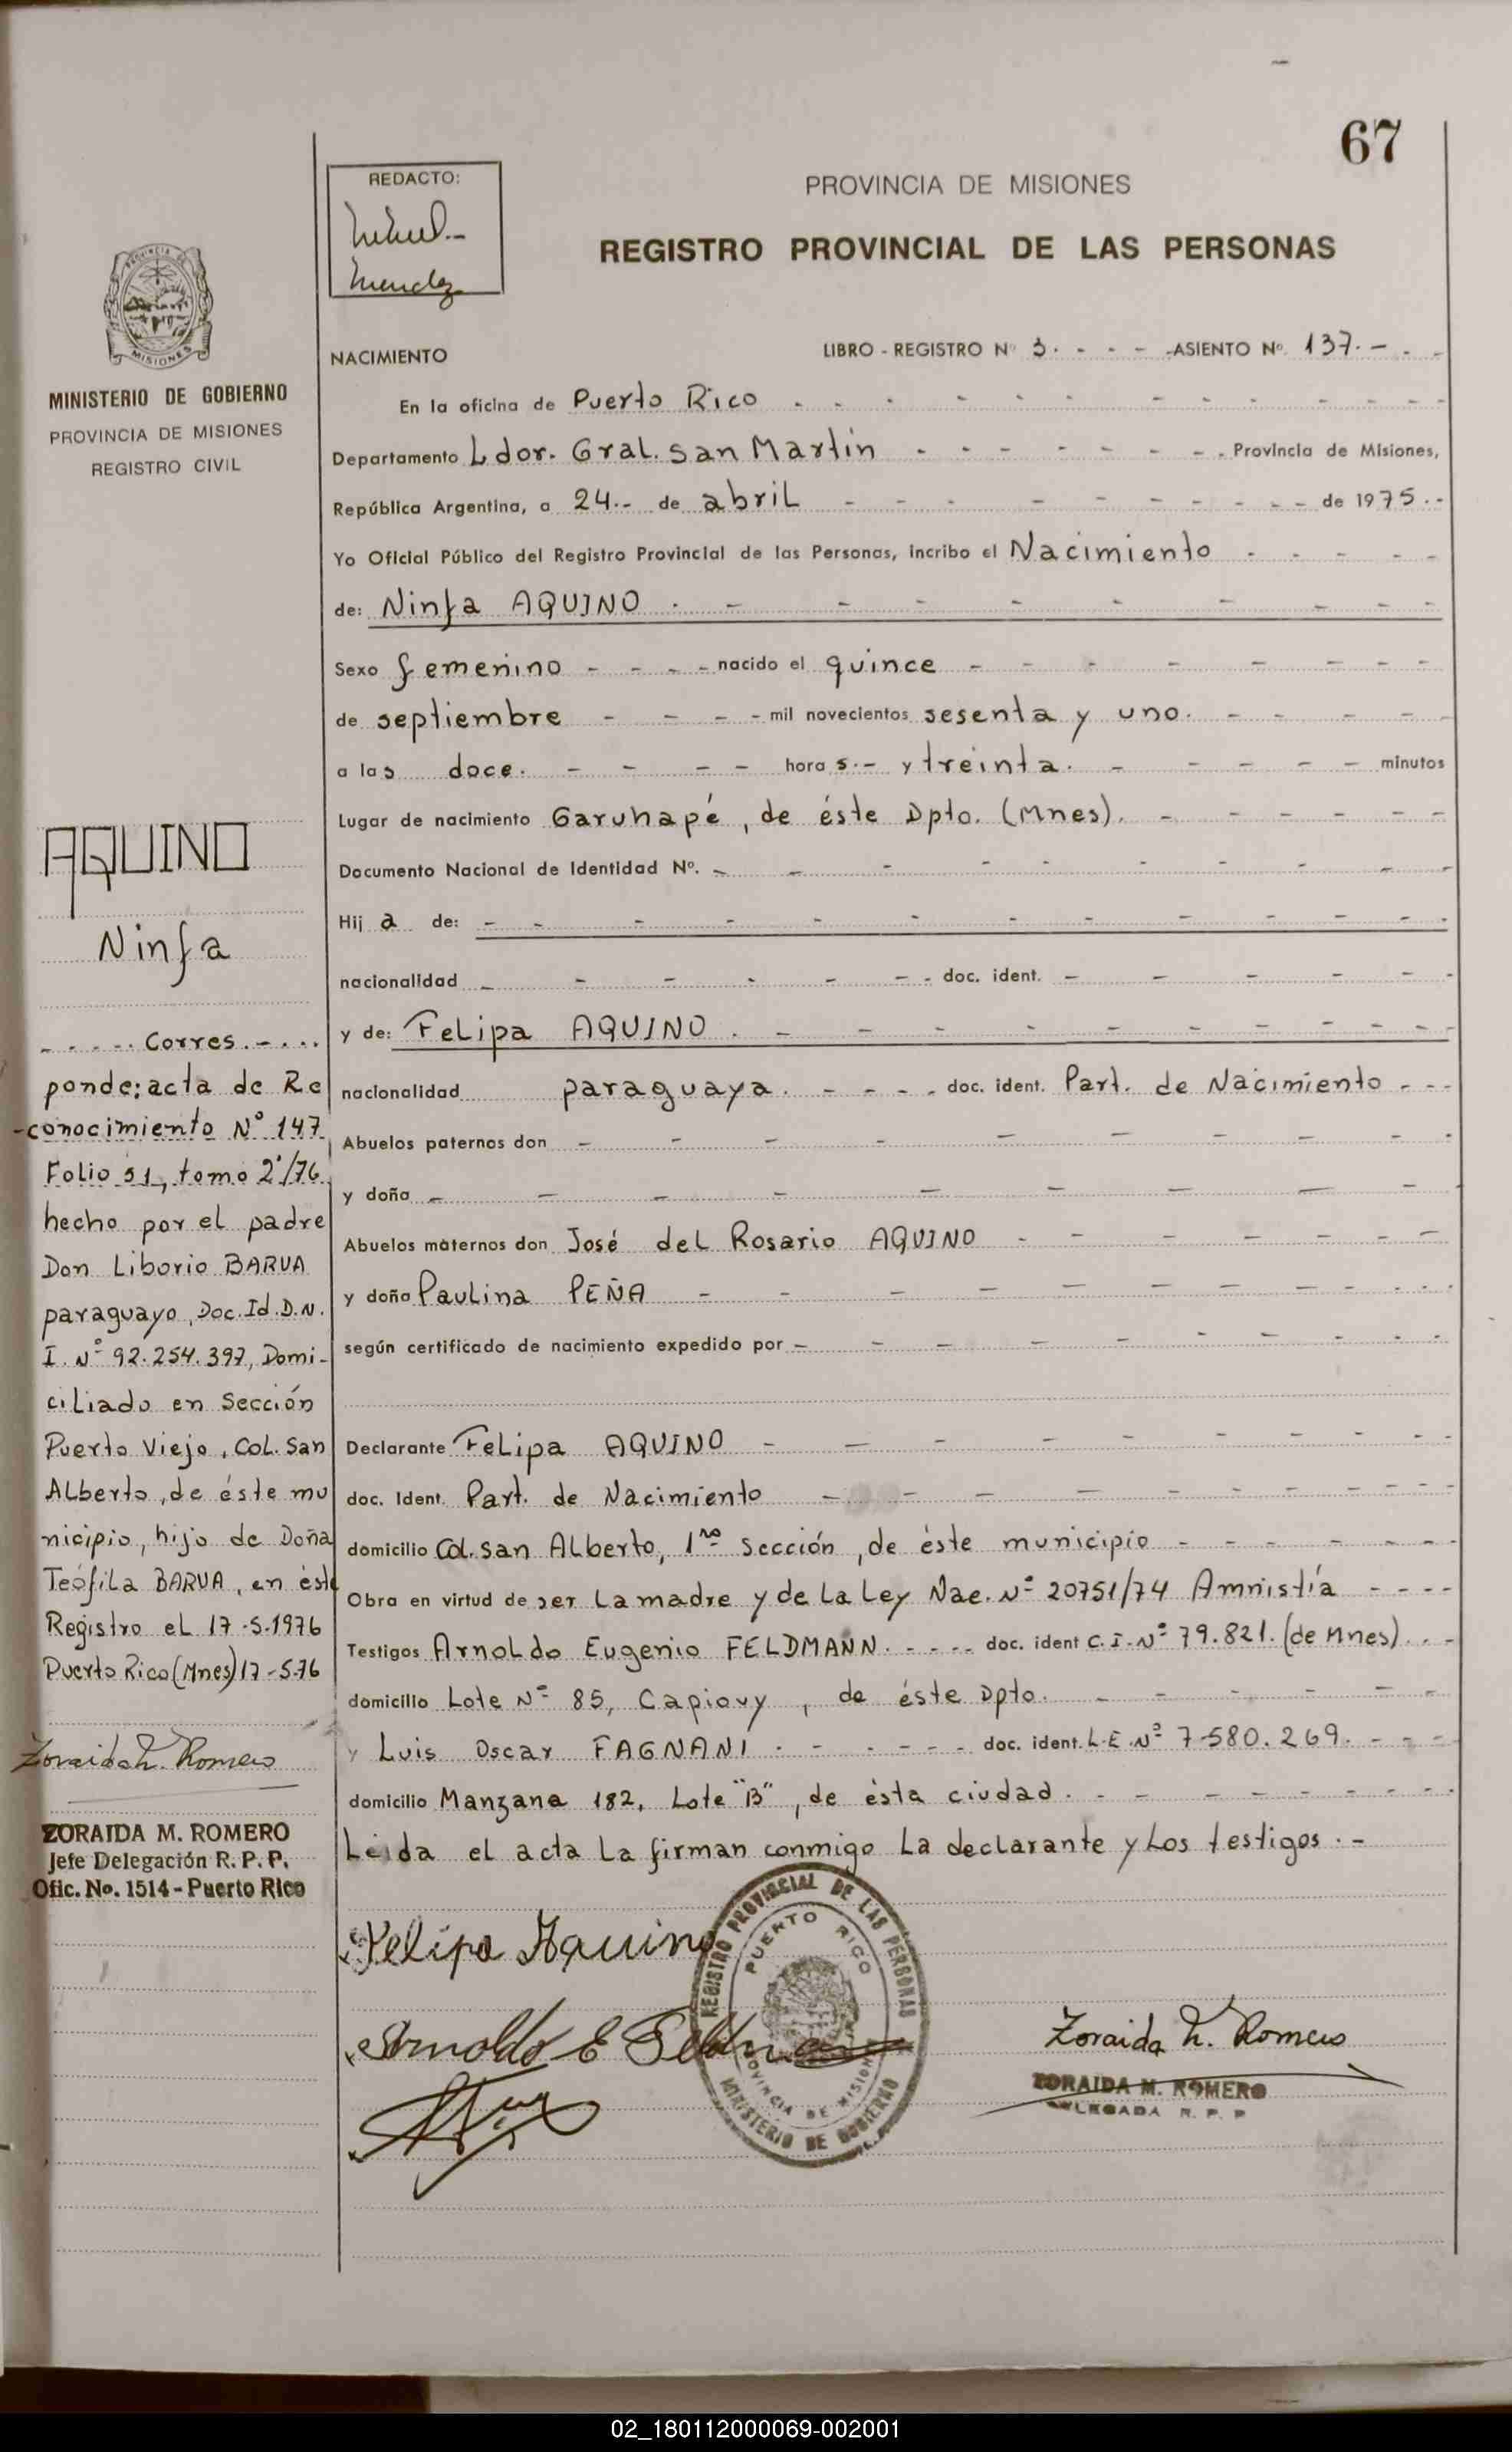 67
REDACTO:
Mendez
PROVINCIA DE MISIONES
REGISTRO PROVINCIAL DE LAS PERSONAS
PROVINCIA DE MISIONES
MINISTERIO DE GOBIERNO
PROVINCIA DE MISIONES
REGISTRO CIVIL
AQUINO
Ninfa
- - - - -. Corres. - . . .
ponde: acta de Re
-conocimiento Nº 147
Folio 51, tomo 2º/76
hecho por el padre
Don Liborio BARUA
paraguayo, Doc. Id. D.N.
I. Nº 92.254.397, Domi-
ciliado en Sección
Puerto Viejo, Col. San
Alberto, de éste mu
nicipio, hijo de Doña
Teófila BARUA, en éste
Registro el 17-5-1976
Puerto Rico (Mnes) 17-5-76
Zoraida M. Romero
ZORAIDA M. ROMERO
Jefe Delegación R. P. P.
Ofic. No. 1514 - Puerto Rico
NACIMIENTO LIBRO - REGISTRO Nº 3. - - - - ASIENTO Nº 137. -
En la oficina de Puerto Rico
Departamento Ldor. Gral. San Martín - - - Provincia de Misiones,
República Argentina, a 24.- de abril - - - de 1975. -
Yo Oficial Público del Registro Provincial de las Personas, incribo el Nacimiento
de: Ninfa AQUINO
Sexo femenino - - - - nacido el quince
de septiembre - - - - mil novecientos sesenta y uno.
a las doce. - - - - - hora s.- y treinta. - - - - - minutos
Lugar de nacimiento Garuhapé, de éste Dpto. (Mnes).
Documento Nacional de Identidad Nº. -
Hij a de: -
nacionalidad - - - doc. ident. -
y de: Felipa AQUINO.
nacionalidad paraguaya. - - - - doc. ident. Part. de Nacimiento
Abuelos paternos don -
y doña -
Abuelos maternos don José del Rosario AQUINO
y doña Paulina PEÑA
según certificado de nacimiento expedido por -
Declarante Felipa AQUINO
doc. Ident. Part. de Nacimiento
domicilio Col. San Alberto, 1ra Sección, de éste municipio
Obra en virtud de ser la madre y de la Ley Nae. Nº 20751/74 Amnistía - - - -
Testigos Arnoldo Eugenio FELDMANN. - - - - doc. ident C.I. Nº 79.821. (de Mnes). - -
domicilio Lote Nº 85, Capiovy, de éste Dpto.
y Luis Oscar FAGNANI - - - - - doc. ident. L.E. Nº 7.580.269. - - -
domicilio Manzana 182, Lote "B", de ésta ciudad.
Leída el acta la firman conmigo la declarante y los testigos. -
Felipa Aquino
Arnoldo E Feldmann
REGISTRO PROVINCIAL DE LAS PERSONAS
PUERTO RICO
PROVINCIA DE MISIONES
MINISTERIO DE GOBIERNO
Zoraida M. Romero
ZORAIDA M. ROMERO
DELEGADA R. P. P
02_180112000069-002001